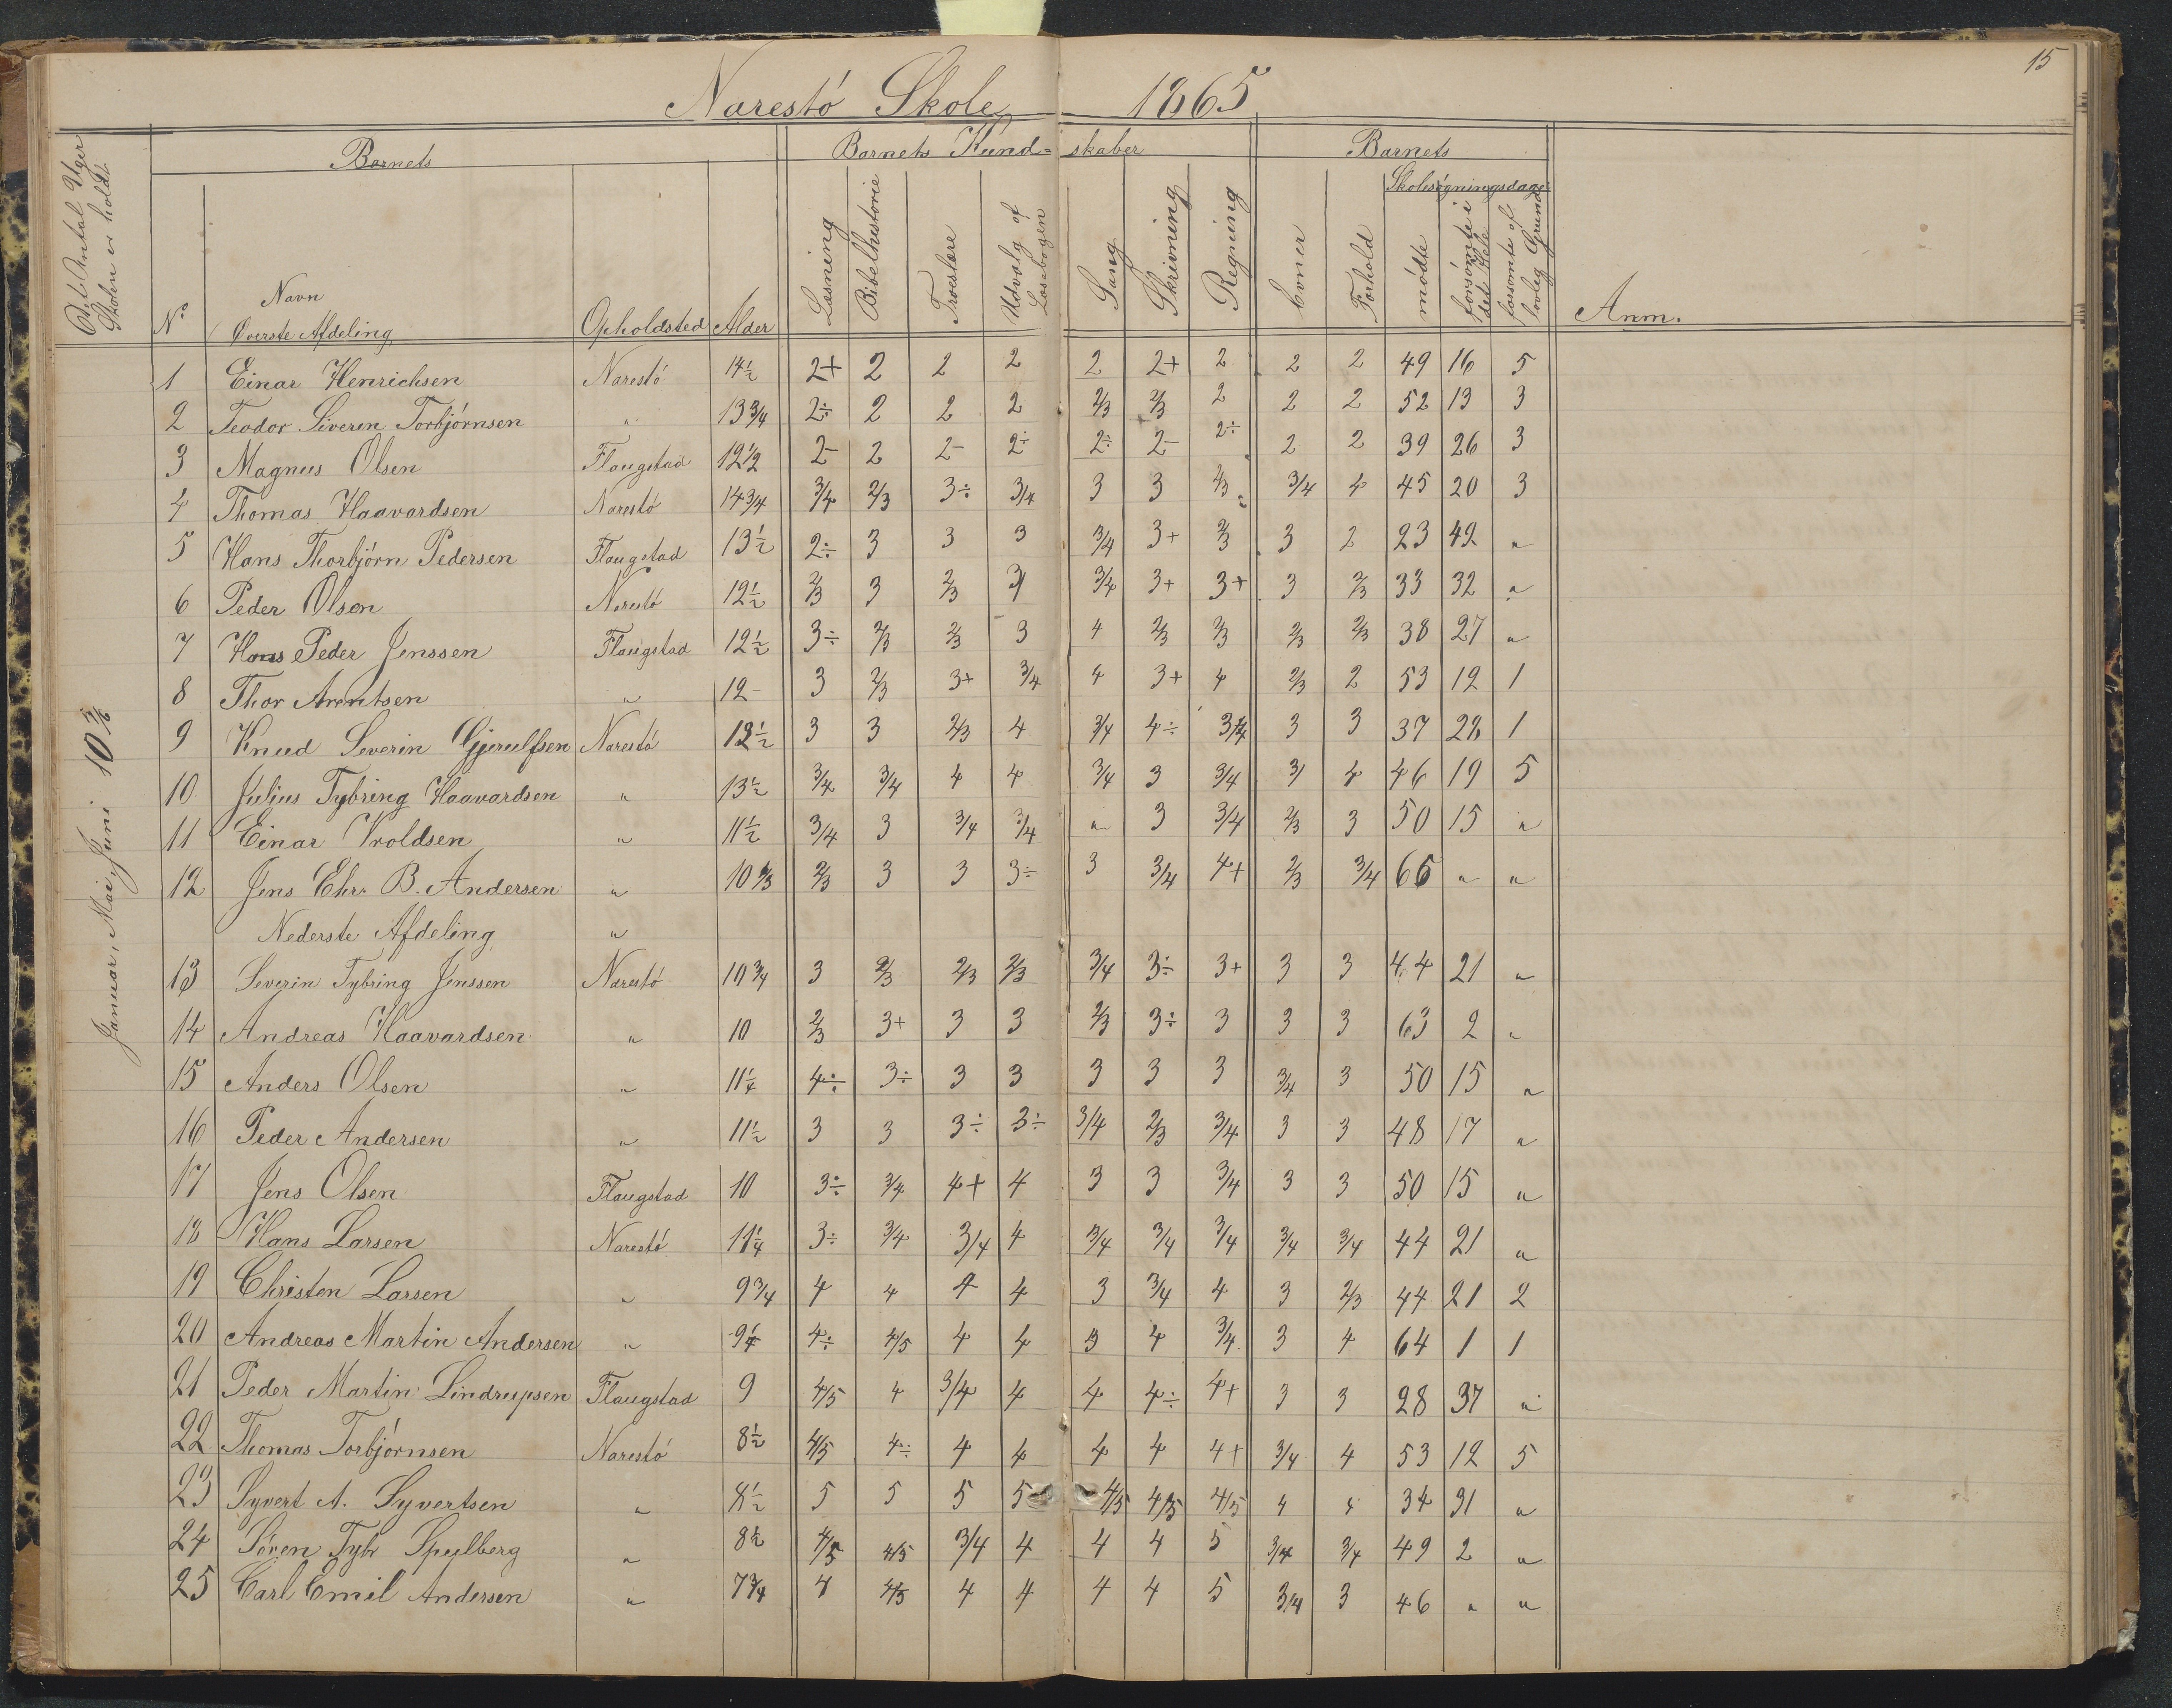 15
Narestö Skole 1865
Det Antal Uger Skolen er holdt
Barnets
Barnets Kund= skaber
Barnets
Skolesøgningsdage
No Navn Øverste Afdeling Opholdsted Alder Læsning Bibelhistorie Troeslære Udvalg af Læsebogen Sang Skrivning Regning Evner Forhold mödte forsömte i det Hele forsömte af lovlig Grund Anm.
Januar, Mai, Juni 10 5/6
1 Einar Henrichsen Narestö 14½ 2+ 2 2 2 2 2+ 2 2 2 49 16 5
2 Teodor Siveren Torbjörnsen " 13¾ 2÷ 2 2 2 2/3 2/3 2 2 2 52 13 3
3 Magnus Olsen Flaugstad 12½ 2- 2 2- 2÷ 2÷ 2- 2÷ 2 2 39 26 3
4 Thomas Haavardsen Narestö 14¾ 3/4 2/3 3÷ 3/4 3 3 2/3 3/4 4 45 20 3
5 Hans Thorbjörn Pedersen Flaugstad 13½ 2÷ 3 3 3 3/4 3+ 2/3 3 2 23 42 "
6 Peder Olsen Narestö 12½ 2/3 3 2/3 3/ 3/4 3+ 3+ 3 2/3 33 32 "
7 Hans Peder Jenssen Flaugstad 12½ 3÷ 2/3 2/3 3 4 2/3 2/3 2/3 2/3 38 27 "
8 Thor Arentsen " 12- 3 2/3 3+ 3/4 4 3+ 4 2/3 2 53 12 1
9 Knud Severin Gjerulfsen Narestö 12½ 3 3 2/3 4 3/4 4÷ 3/4 3 3 37 28 1
10 Julius Tybring Haavardsen " 13½ 3/4 3/4 4 4 3/4 3 3/4 3/ 4 46 19 5
11 Einar Vroldsen " 11½ 3/4 3 3/4 3/4 " 3 3/4 2/3 3 50 15 "
12 Jens Chr. B. Andersen " 10 2/3 2/3 3 3 3÷ 3 3/4 4+ 2/3 3/4 66 " "
Nederste Afdeling "
13 Severin Tybring Jenssen Narestö 10¾ 3 2/3 2/3 2/3 3/4 3÷ 3+ 3 3 44 21 "
14 Andreas Haavardsen " 10 2/3 3+ 3 3 2/3 3÷ 3 3 3 63 2 "
15 Anders Olsen " 11¼ 4÷ 3÷ 3 3 3 3 3 3/4 3 50 15 "
16 Peder Andersen " 11½ 3 3 3÷ 3÷ 3/4 2/3 3/4 3 3 48 17 "
17 Jens Olsen Flaugstad 10 3÷ 3/4 4+ 4 3 3 3/4 3 3 50 15 "
18 Hans Larsen Narestö 11¼ 3÷ 3/4 3/4 4 3/4 3/4 3/4 3/4 3/4 44 21 "
19 Christen Larsen " 9¾ 4 4 4 4 3 3/4 4 3 2/3 44 21 2
20 Andreas Martin Andersen " 9¼ 4÷ 4/5 4 4 3 4 3/4 3 4 64 1 1
21 Peder Martin Lindrupsen Flaugstad 9 4/5 4 3/4 4 4 4÷ 4+ 3 3 28 37 "
22 Thomas Torbjörnsen Narestö 8½ 4/5 4÷ 4 4 4 4 4+ 3/4 4 53 12 5
23 Syvert A. Syvertsen " 8½ 5 5 5 5 4/5 4/5 4/5 4 4 34 31 "
24 Sören Tybr Spulberg " 8½ 4/5 4/5 3/4 4 4 4 5 3/4 3/4 49 2 "
25 Carl Emil Andersen " 7¾ 4 4/5 4 4 4 4 5 3/4 3 46 " "